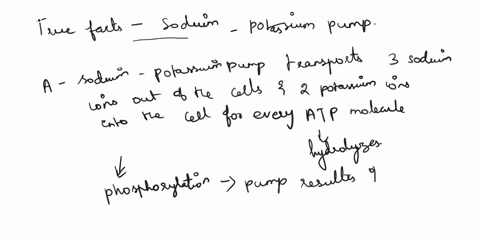 True facts - Sodium - potassium pump.
A - sodium - potassium pump transports 3 sodium
ions out of the cells & 2 potassium ions
into the cell for every ATP molecule
hydrolyzes
phosphorylation → pump results